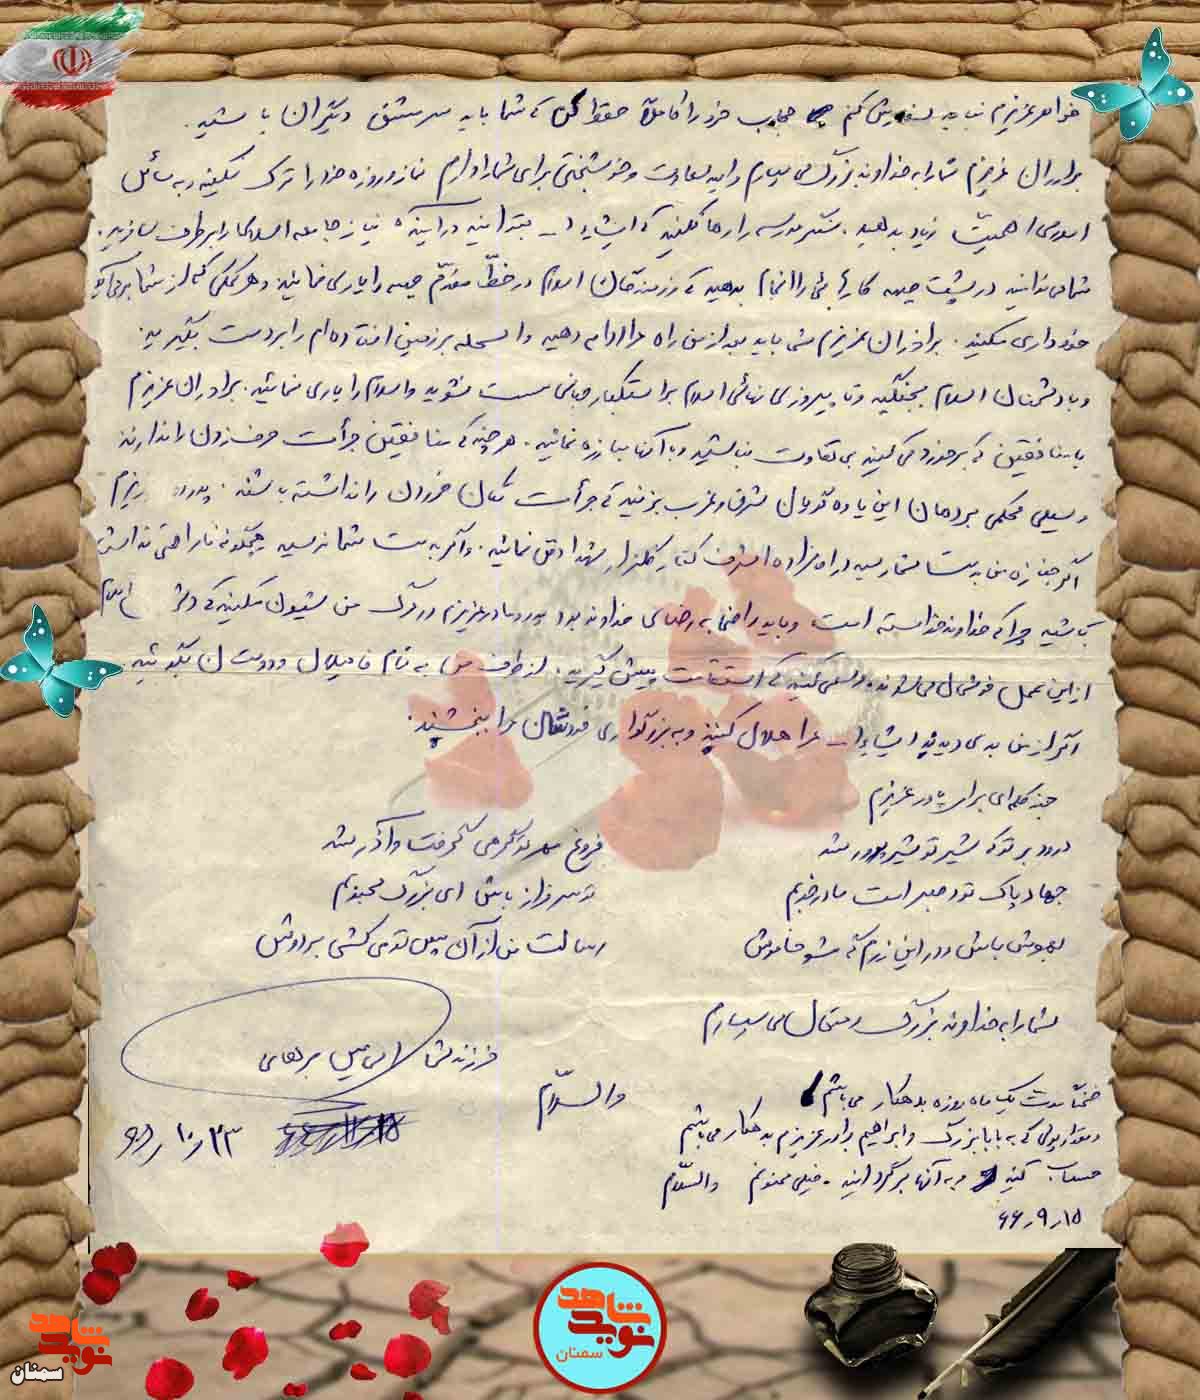 خواهر عزیزم نباید سفارش کنم حجاب خود را کاملاً حفظ کن که شما باید سرمشق دیگران باشید.
برادران عزیزم شما را به خداوند بزرگ می سپارم و امید سعادت و خوشبختی برای شما را دارم نماز و روزه خود را ترک نکنید و به مسائل
اسلامی اهمیت زیاد بدهید. سنگر مدرسه را رها نکنید که انشاءا... بتوانید در آینده نیاز جامعه اسلامی را برطرف سازید.
شما می توانید در پشت جبهه کارهائی را انجام بدهید که رزمندگان اسلام در خط مقدم جبهه را یاری نمائید و هر کمکی که از شما بر می آید
خودداری نکنید. برادران عزیزم شما باید بعد از من راه مرا ادامه دهید و اسلحه بر زمین افتاده ام را بر دست بگیرید
و با دشمنان اسلام بجنگید و تا پیروزی نهائی اسلام بر استکبار جهانی سست نشوید و اسلام را یاری نمائید. برادران عزیزم
با منافقین که برخورد می کنید بی تفاوت نباشید و با آنها مبارزه نمائید. هر چند که منافقین جرأت حرف زدن را ندارند
و سیلی محکمی بر دهان این یاوه گویان شرق و غرب بزنید که جرأت تکان خوردن را نداشته باشند.
اگر جنازه من بدست شما رسید در امامزاده اشرف کنار گلزار شهدا دفن نمائید. و اگر به دست شما نرسید هیچگونه ناراحتی نداشته
باشید چرا که خداوند خواسته است و باید راضی به رضای خداوند بود پدر و مادر عزیزم در مرگ من شیون نکنید که دشمن اسلام
از این عمل خوشحال می شوند. و سعی کنید که استقامت پیش گیرید. از طرف من به تمام فامیلان و دوستان بگوئید
اگر از من بدی دیدند انشاءا... مرا حلال کنند و به بزرگواری خودشان مرا ببخشند.
چند کلمه ای برای مادر عزیزم
درود بر تو که شیر تو شیر پرور شد
فروغ مهر تو گرمی گرفت و آذر شد
جهاد پاک تو صبر است مادر خوبم
تو سرفراز باش ای بزرگ محبوبم
بهوش باش در این رزمگه مشو خاموش
رسالت من از آن پس تو می کشی بر دوش
شما را به خداوند بزرگ و متعال می سپارم
فرزند شما
والسلام
ضمناً مدت یک ماه روزه بدهکار می باشم
و مقدار پولی که به بابابزرگ و ابراهیم برادر عزیزم بدهکار می باشم
حساب کنید و به آنها برگردانید. خیلی ممنونم والسلام
۶۶٫۹٫۱۵
نوید شاهد
سمنان
نوید شاهد
سمنان